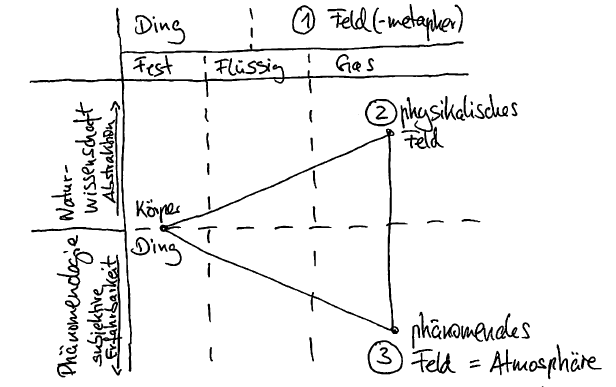 Ding
① Feld(-metapher)
Fest
Flüssig
Gas
Natur-
wissenschaft
Abstraktion
② physikalisches
Feld
Körper
Ding
Phänomenologie
subjektive
Erfahrbarkeit
phänomendes
③ Feld = Atmosphäre